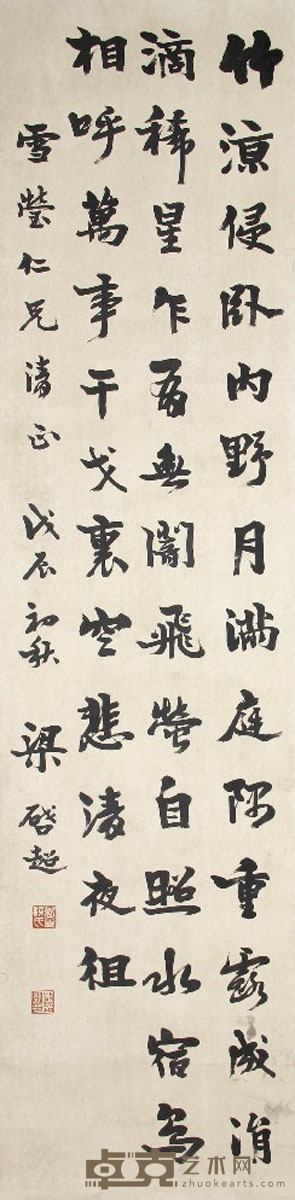 竹涼侵卧内野月滿庭隅重露成涓
滴稀星乍有無闇飛螢自照水宿鳥
相呼萬事干戈裏空悲清夜徂
雪瑩仁兄清正 戊辰初秋 梁啟超
卓克艺术网
www.zhuokearts.com